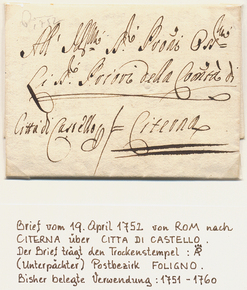 Ill: Sig:ri Pròni Oss:mi
Li S:ri Priori della Com:tà di
Città di Castello p Citerna
Brief vom 19. April 1752 von ROM nach
CITERNA über CITTA DI CASTELLO.
Der Brief trägt den Trockenstempel :
(Unterpächter) Postbezirk FOLIGNO.
Bisher belegte Verwendung : 1751 - 1760